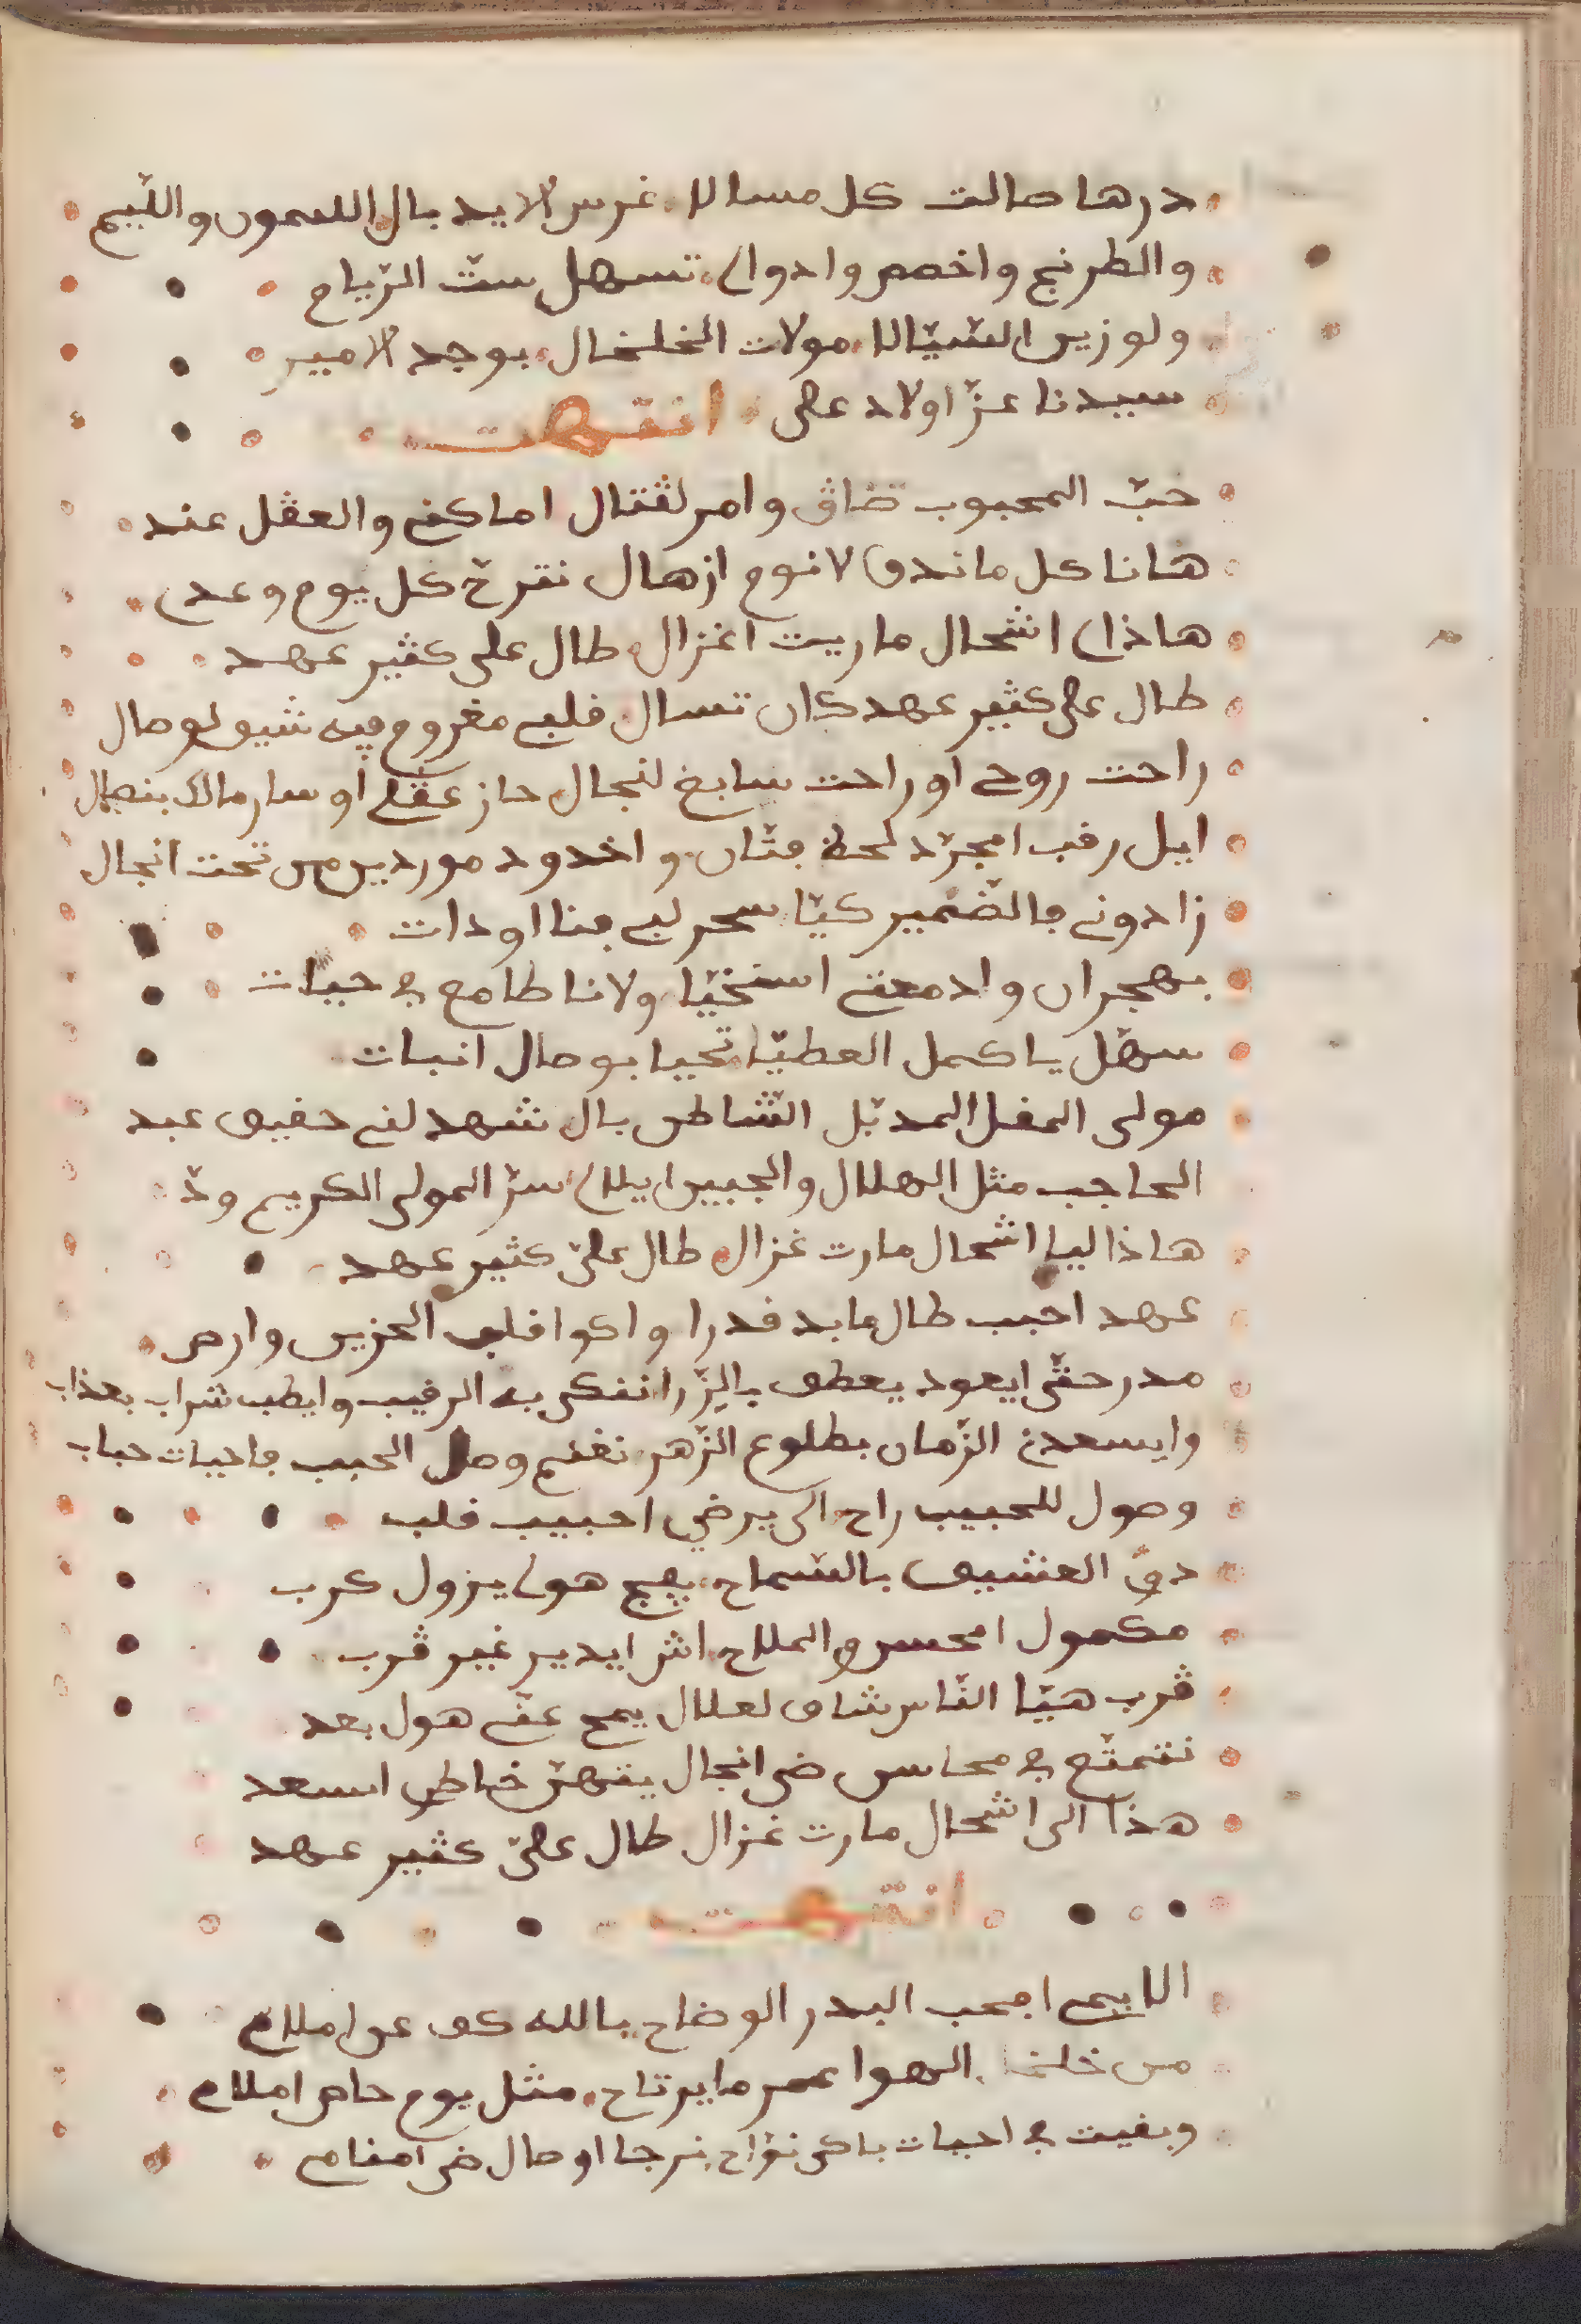 درها صالت كل مسالا غرس الايد بال الليمون والليم
والطرنج واخصص وادواي تسهل ست الرياح
ولوزير السّيّالا مولات الخلخال بوجد الامير
سيدنا عزّ اولاد على انتهت
حبّ المحبوب ضاڧ وامر لڧتال اما كڢ والعڧل عند
هانا كل ماندڢ لا نوم ازهال نترح كل يوم وعدي
هاذاي اشحال ماريت اغزال طال على كثير عهد
طال على كثير عهد كان تسال قلبي مغروم فيه شيق لوصال
راحت روحي اوراحت سابغ لنجال حاز عقلي أو سار مالك بنصال
ايل رقب امجرّد لحظ فتّان واخدود موردين من تحت انجال
زادوني فالضّمير كيّا سحر لي فنا اودات
بهجران وادمعتي استخيّا ولانا طامع في حيات
سهّل يا كمل العطيّا تحيا بوصال انبات
مولى المقل المدبّل الشّاطن بال شهد لني حقيق عبد
الحاجب مثل الهلال والجبين ايلاي سرّ المولى الكريم ودّ
هاذا ليا اشحال مارت غزال طال علىّ كثير عهد
عهد احبب طال مابد قدرا واكوا قلب الحزين وارص
مدر حتّى ايعود يعطف بالزّرا ننكى به الرقيب وايطب شراب بعذاب
وايسعدني الزّمان بطلوع الزّهر نغنم وصل الحبب فاحيات حباب
وصول للحبيب راح الى يرضي احبيب قلب
دقّ العشيق بالسّماح يفج هولي يزول كرب
مكمول امحسن والملاح اش ايدير غير ڧرب
ڧرب هيّا النّاس شاق لعلال يمح عنّي هول بعد
نتمتّع في محاسن ضي انجال يتهنّ خاطر اسعد
هذا الى اشحال مارت غزال طال علىّ كثير عهد
انتهت
الايمي امحب البدر الوضاح بالله كف عن املام
من خلخا الهوا عمر مايرتاح مثل يوم حاص املام
وبقيت في احيات باكي نوّاح نرجا اوصال ضي امنام